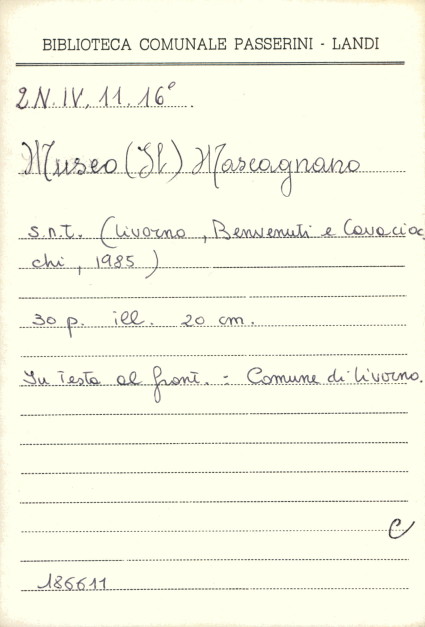 BIBLIOTECA COMUNALE PASSERINI - LANDI
2N.IV.11.16°.
Museo (Il) Mascagnano
s.n.t. (Livorno, Benvenuti e Cavacioc
chi, 1985)
30 p. ill. 20 cm.
In testa al front. = Comune di Livorno.
C
186611